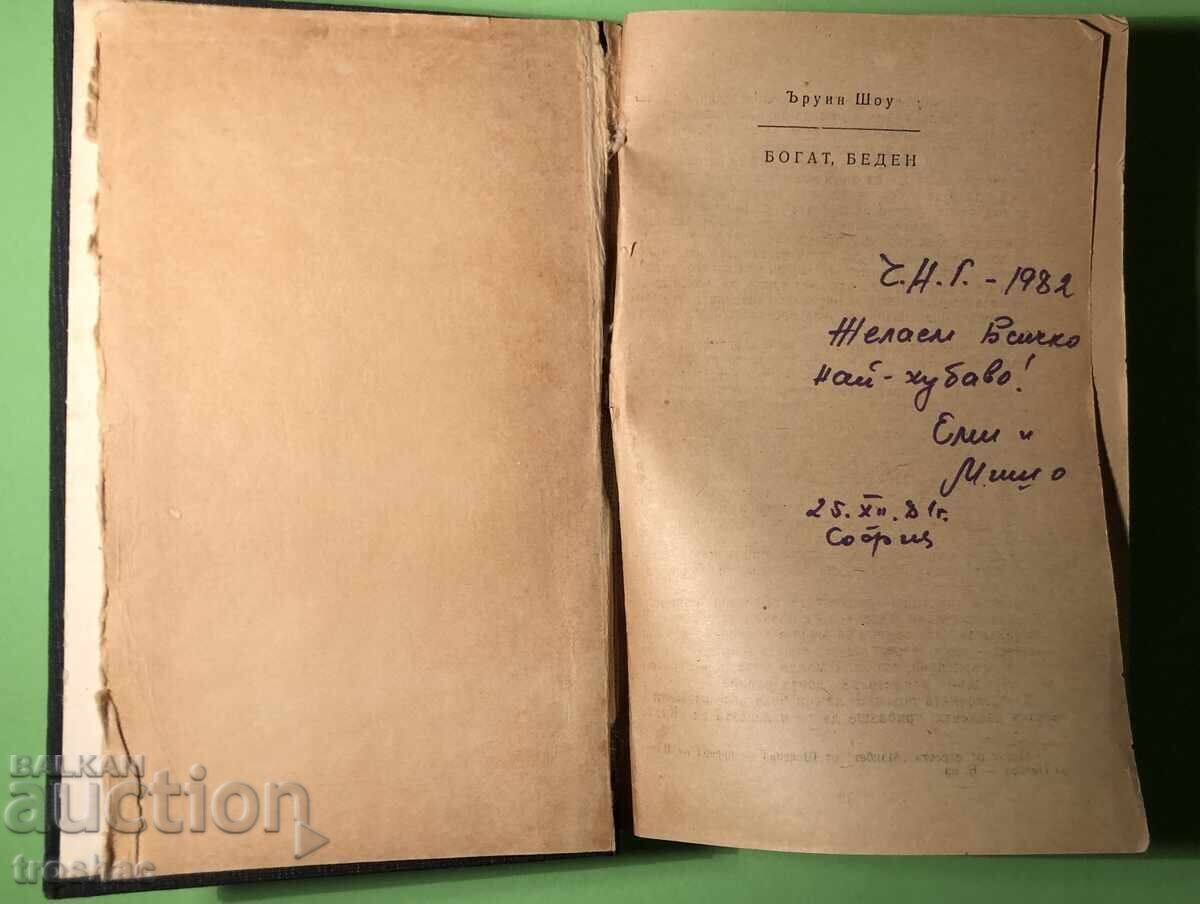 Ъруин Шоу
БОГАТ, БЕДЕН
Ч.Н.Г. - 1982
Желаем Всичко
най-хубаво!
Ели и
Мишо
25.XII.81г.
София
BALKAN
auction
troshac